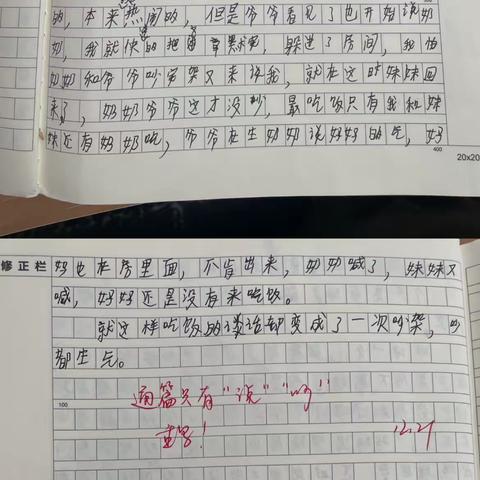 的，本来热闹的，但是爷爷看见了也开始说奶
奶，我就快的把 拿，躲进了房间，我怕
奶奶和爷爷吵完架又来说我，就在这时妹妹回
来了，奶奶爷爷这才没吵，最吃饭只有我和妹
妹还有奶奶吃，爷爷在生奶奶说好好的气，好
400
20x20
修正栏
好也在房里面，不肯出来，奶奶喊了，妹妹又
喊，好好还是没有来吃饭。
就这样吃饭的谈话却变成了一次吵架，
都生气。
100
通篇只有“说”“吵”
重写！
12.21